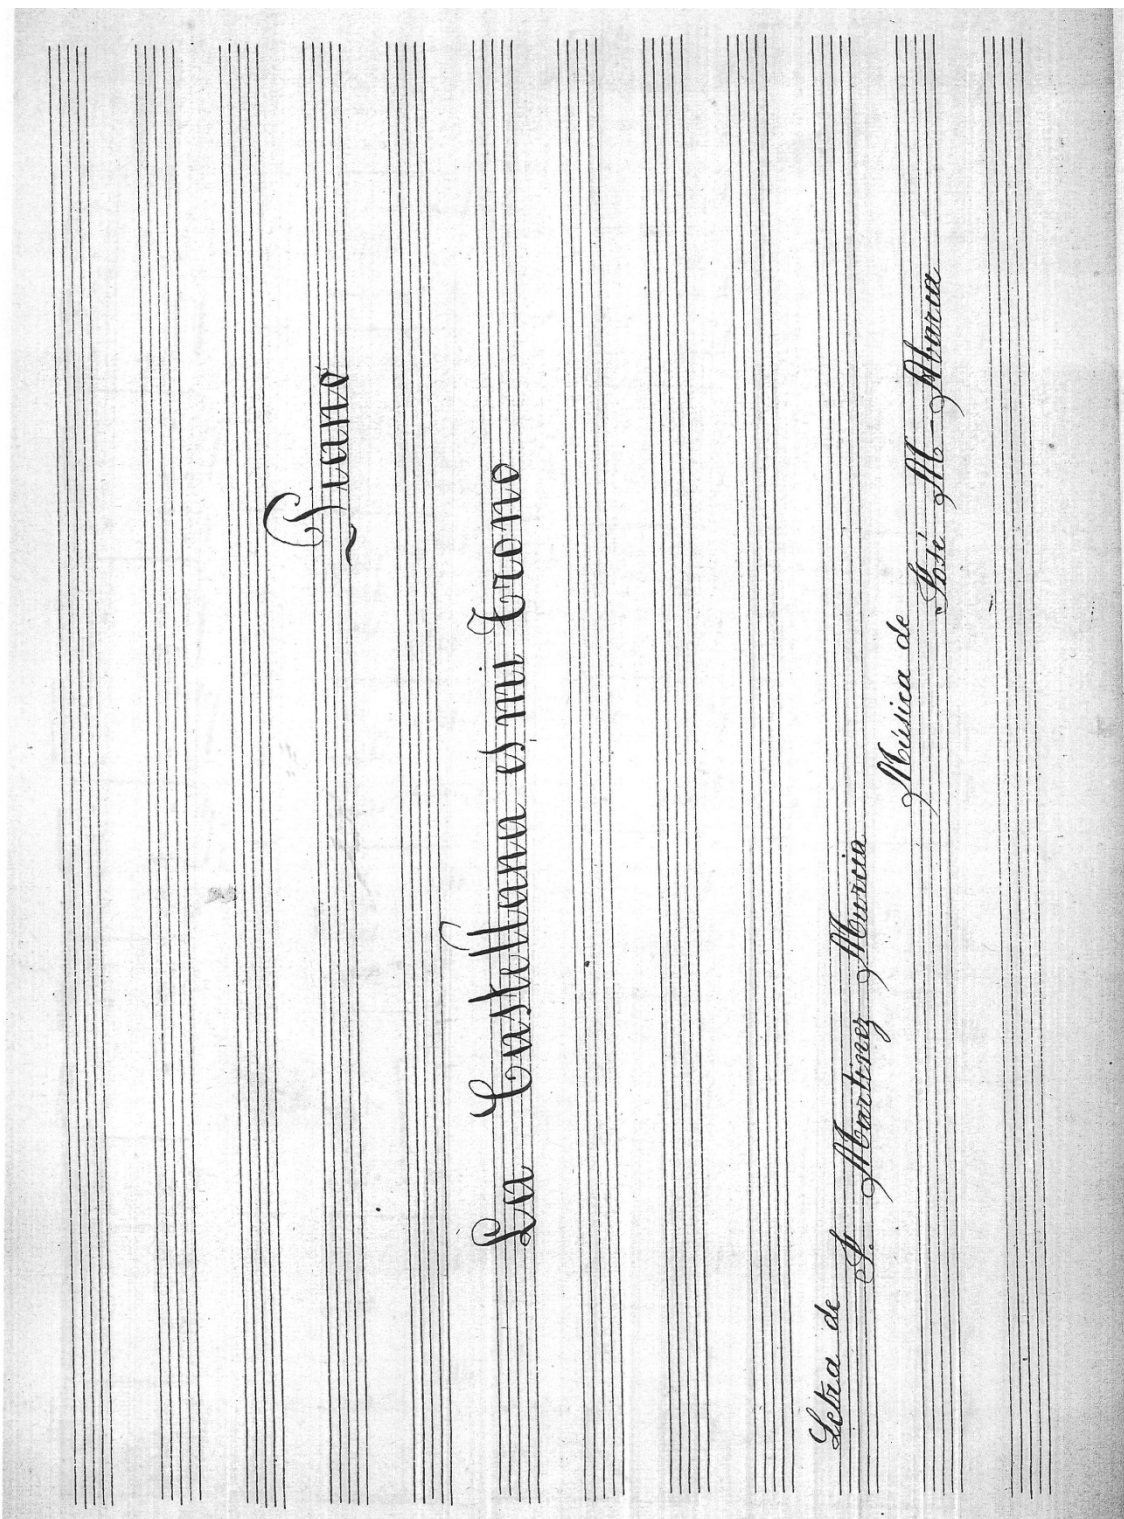 Piano
La Castellana es mi trono
Letra de
P. Martinez Murcia
Música de
José M-Abarca